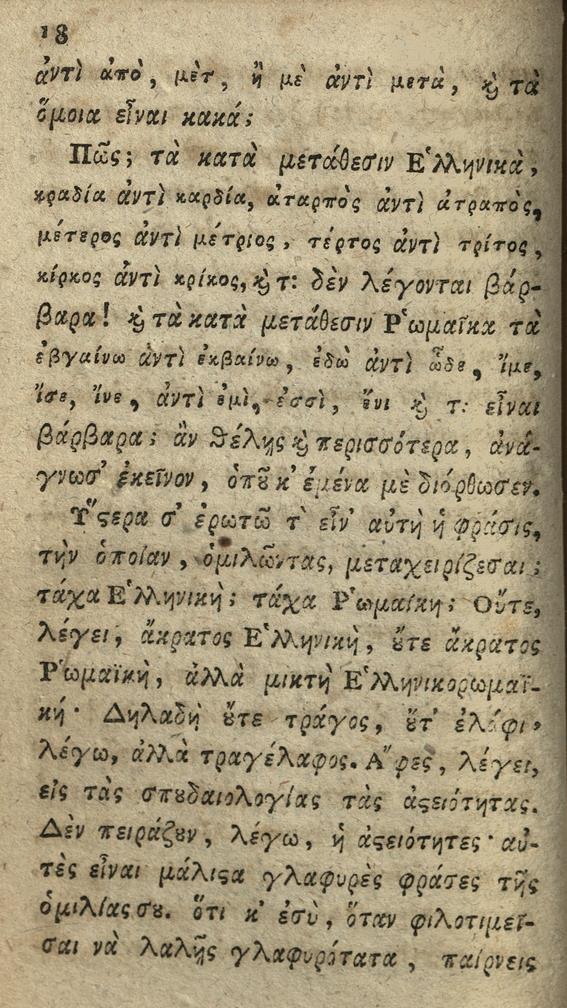 18
ἀντὶ ἀπὸ, μὲτ, ἢ μὲ ἀντὶ μετὰ, ϗ τὰ
ὅμοια εἶναι κακά;
Πῶς; τὰ κατὰ μετάθεσιν Ἑλληνικὰ,
κραδία ἀντὶ καρδία, ἀταρπὸς ἀντὶ ἀτραπὸς,
μέτερος ἀντὶ μέτριος, τέρτος ἀντὶ τρίτος,
κίρκος ἀντὶ κρίκος, ϗ τ: δὲν λέγονται βάρ-
βαρα! ϗ τὰ κατὰ μετάθεσιν Ῥωμαΐκα τὰ
ἐβγαίνω ἀντὶ ἐκβαίνω, ἐδὼ ἀντὶ ὧδε, ἴμε,
ἴσε, ἴνε, ἀντὶ ἐμὶ, ἐσσὶ, ἔνι ϗ τ: εἶναι
βάρβαρα; ἂν θέλῃς ϗ περισσότερα, ἀνά-
γνωσ' ἐκεῖνον, ὁπȣ κ' ἐμένα μὲ διόρθωσεν.
Ὕϛερα σ' ἐρωτῶ τ' εἶν' αὐτὴ ἡ φράσις,
τὴν ὁποίαν, ὁμιλῶντας, μεταχειρίζεσαι;
τάχα Ἑλληνική; τάχα Ῥωμαίκη; Οὔτε,
λέγει, ἄκρατος Ἑλληνικὴ, ȣτε ἄκρατος
Ῥωμαϊκὴ, ἀλλὰ μικτὴ Ἑλληνικορωμαϊ-
κή· Δηλαδὴ ȣτε τράγος, ȣτ' ἐλάφι,
λέγω, ἀλλὰ τραγέλαφος. Ἄφες, λέγει,
εἰς τὰς σπȣδαιολογίας τὰς ἀϛειότητας.
Δὲν πειράζȣν, λέγω, ἡ ἀϛειότητες· αὐ-
τὲς εἶναι μάλιϛα γλαφυρὲς φράσες τῆς
ὁμιλίας σȣ. ὅτι κ' ἐσὺ, ὅταν φιλοτιμεῖ-
σαι νὰ λαλῇς γλαφυρότατα, παίρνεις